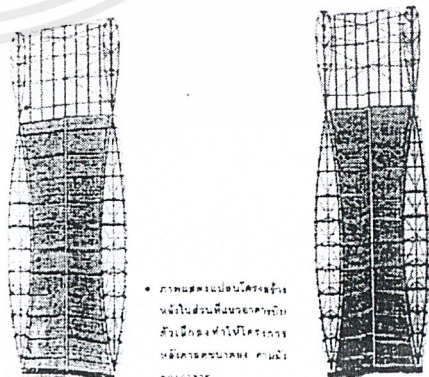 • ภาพแสดงแปลนโครงสร้าง
หลังในส่วนที่แนวอาคารบีบ
ตัวเล็กลงทำให้โครงการ
หลังคาลดขนาดลง ตามผัง